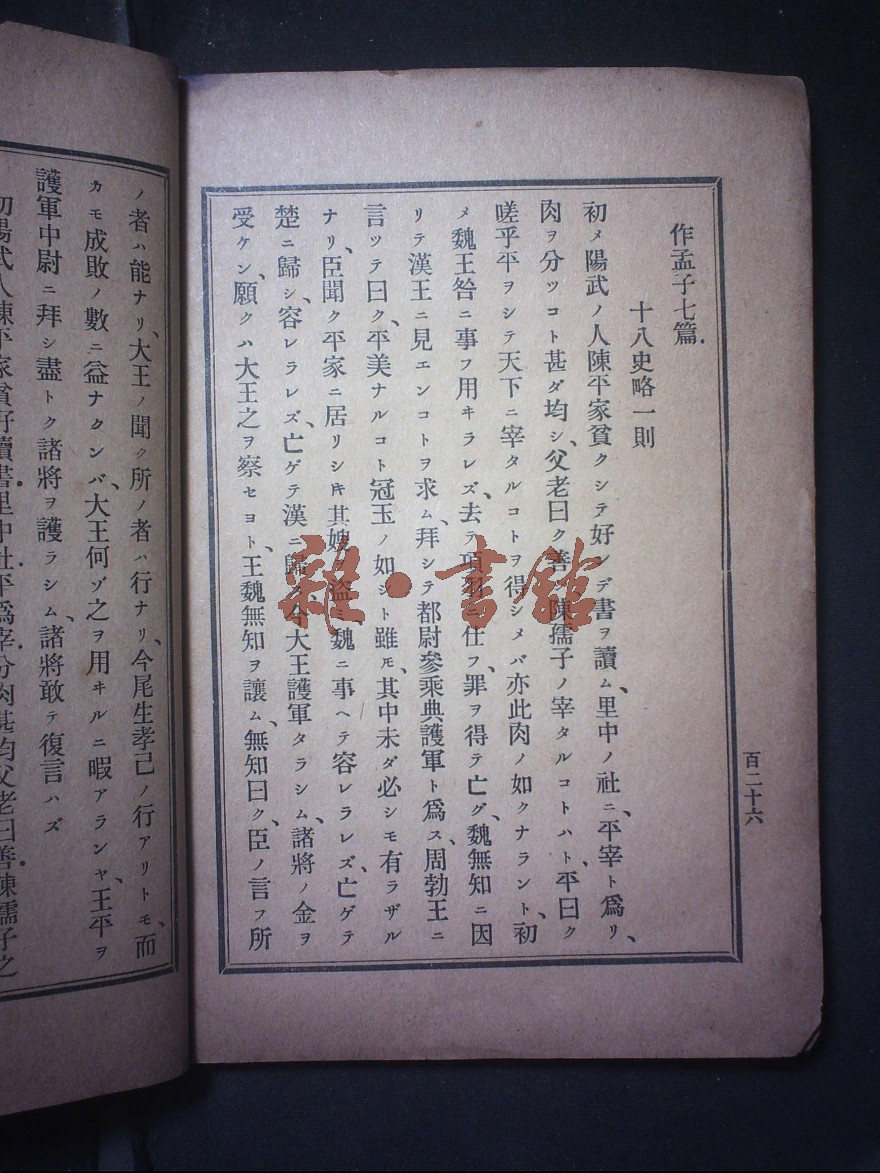 作孟子七篇.
十八史略一則
初メ陽武ノ人陳平家貧クシテ好ンデ書ヲ讀ム、里中ノ社ニ、平宰ト爲リ、
肉ヲ分ツコト甚ダ均シ、父老曰ク善陳孺子ノ宰タルコトハト、平曰ク
嗟乎平ヲシテ天下ニ宰タルコトヲ得シメバ亦此肉ノ如クナラント、初
メ魏王咎ニ事フ用ヰラレズ、去テ項羽ニ仕フ、罪ヲ得テ亡グ、魏無知ニ因
リテ漢王ニ見エンコトヲ求ム、拜シテ都尉參乘典護軍ト爲ス、周勃王ニ
言ツテ曰ク、平美ナルコト冠玉ノ如シト雖モ、其中未ダ必シモ有ラザル
ナリ、臣聞ク平家ニ居リシ𪜈其嫂ヲ盜ミ、魏ニ事ヘテ容レラレズ、亡ゲテ
楚ニ歸シ、容レラレズ、亡ゲテ漢ニ歸ス、今大王護軍タラシム、諸將ノ金ヲ
受ケン、願クハ大王之ヲ察セヨト、王魏無知ヲ讓ム、無知曰ク、臣ノ言フ所
百二十六
ノ者ハ能ナリ、大王ノ聞ク所ノ者ハ行ナリ、今尾生孝己ノ行アリトモ、而
カモ成敗ノ數ニ益ナクンバ、大王何ゾ之ヲ用ヰルニ暇アランヤ、王平ヲ
護軍中尉ニ拜シ盡トク諸將ヲ護ラシム、諸將敢テ復言ハズ
初陽武人陳平家貧好讀書.里中社.平爲宰.分肉甚均父老曰善.陳孺子之
雜·書館